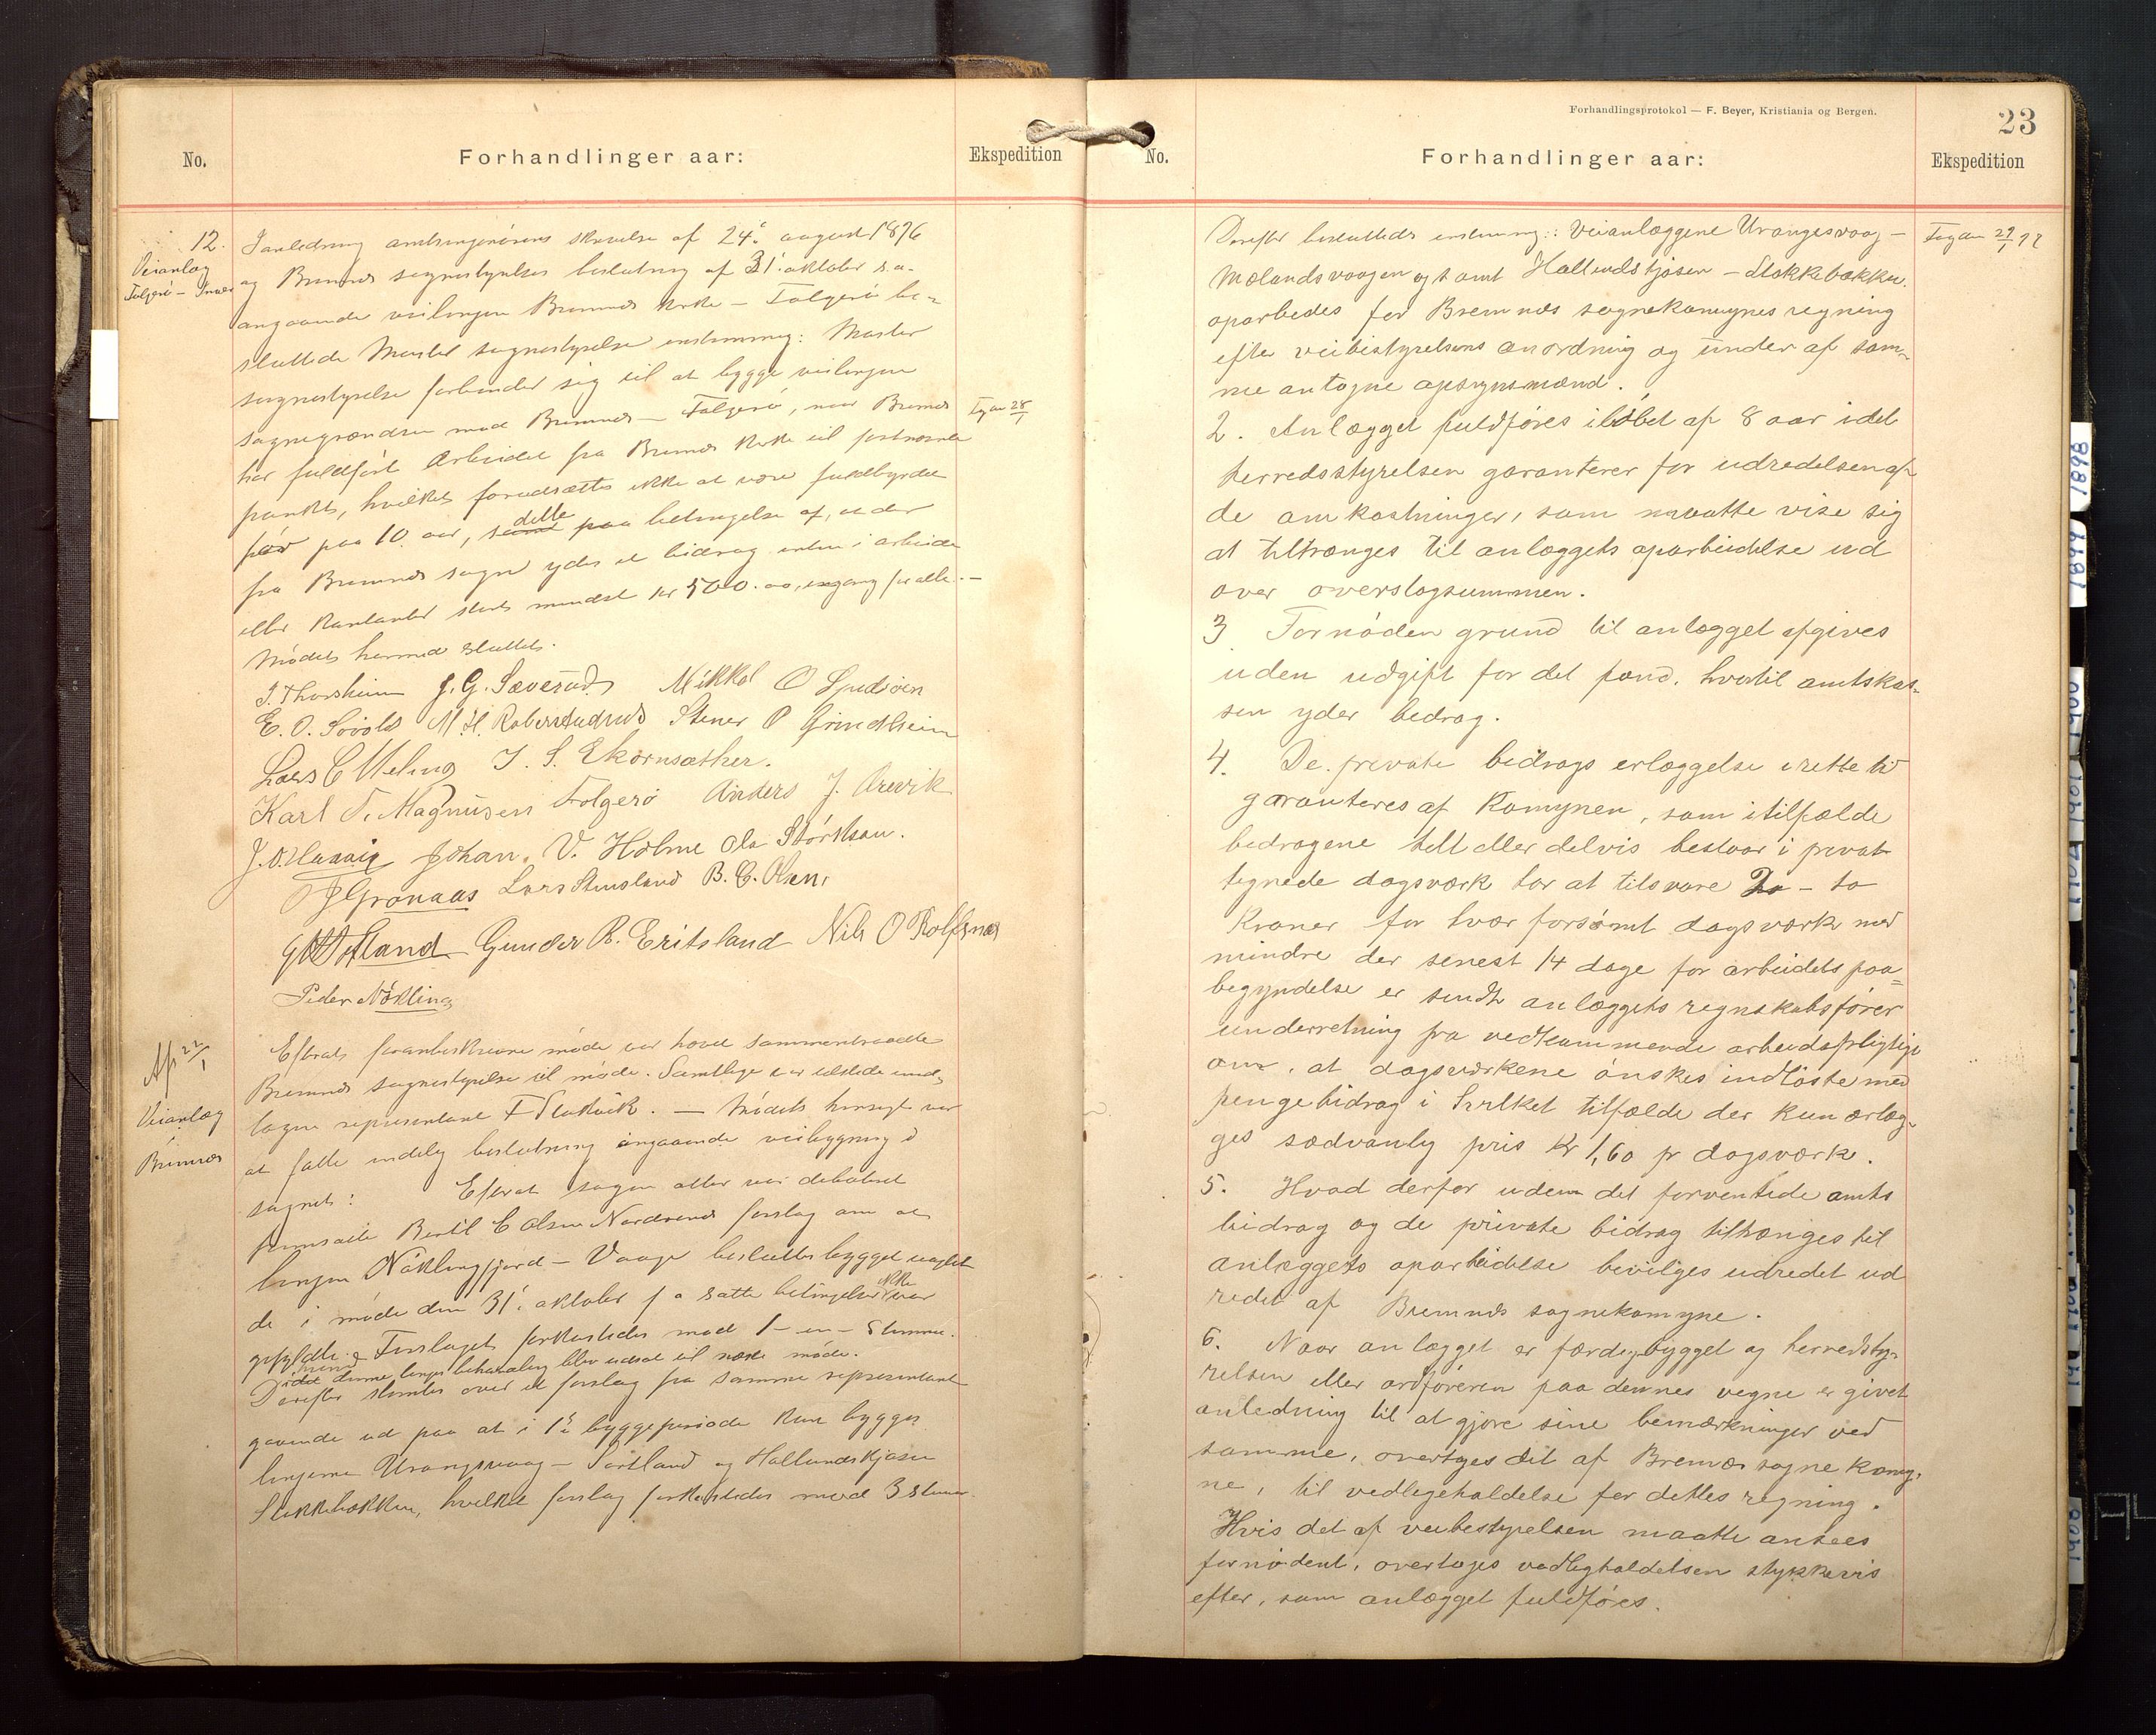 No.
Forhandlinger aar:
Ekspedition
12.
Veianlæg
Folgerø -
I anledning amtsingeniørens skrivelse af 24de august 1896
og Bremnæs sognestyrelses beslutning af 31. oktober s.a.
angaaende veilinjen Bremnæs kirke — Folgerø be-
sluttede Moster sognestyrelse enstemmig: Moster
sognestyrelse forbinder sig til at bygge veilinjen
sognegrændsen mod Bremnæs — Folgerø, naar Bremnæs
har fuldført Arbeidet fra Bremnæs kirke til førstnævnte
punkt, hvilket forudsættes ikke at være fuldbyrdet
før paa 10 aar, dette paa betingelse af, at der
fra Bremnæs sogn ydes et bidrag enten i arbeide
eller kontanter stort mindst kr 500.00, engang for alle. —
Mødet hermed sluttet.
Exp. 28/1
J. Thorsheim J. G. Sæverud Mikkel O Spidsøen
E. O. Søvold M. H. Robberstadnæs Stener P Grindheim
Lars C Meling J. S. Ekornsæther.
Karl T. Magnusen Folgerø Anders J. Árevik
J. O. Johan. V. Holme Ola Størkson.
J Grønaas Lars Stensland B. C. Olsen,
Gunder R. Eritsland Nils O Rolfsnæs
Peder Nøkling
Af 22/1
Veianlæg
i
Bremnæs
Efterat foranbeskrevne møde var hævet sammentraadte
Bremnæs sognestyrelse til møde. Samtlige var tilstede und-
tagen repræsentant F Slatvik. — Mødets hensigt var
at fatte endelig beslutning angaaende veibygning i
sognet:
Efterat sagen atter var debateret
fremsatte Bertil C Olsen Nordvands forslag om at
linjen Nøklingfjord — Vaage besluttes bygget uagtet
de i møde den 31. oktober f a satte betingelser ikke var
opfyldte. Forslaget forkastedes mod 1 — en — Stemme.
idet denne linjes behandling blev udsat til næste møde.
Derefter stemtes over et forslag fra samme repræsentant
gaaende ud paa at i 1ste byggeperiode kun bygges
linjerne Urangsvaag — Sortland og Hallandskjosen
Stokkebækken, hvilket forslag forkastedes mod 3 stemmer.
Forhandlingsprotokol — F. Beyer, Kristiania og Bergen.
23
No.
Forhandlinger aar:
Ekspedition
Exp den 29/1 97
Derefter besluttedes enstemmig: Veianlæggene Urangsvaag —
Mælandsvaagen og samt Hallandskjosen — Stokkbækken.
oparbeides for Bremnæs sognekomynes regning
efter veibestyrelsens anordning og under af sam-
me antagne opsynsmænd.
2. Anlægget fuldføres i løbet af 8 aar idet
herredsstyrelsen garanterer for udredelsen af
de omkostninger, som maatte vise sig
at tiltrænges til anlæggets oparbeidelse ud
over overslagsummen.
3 Fornøden grund til anlægget afgives
uden udgift for det fond, hvortil amtskas-
sen yder bedrag.
4. De private bidrags erlæggelse i rette tid
garanteres af Komynen, som i tilfælde
bedragene helt eller delvis bestaar i privat
tegnede dagsværk har at tilsvare 2 — to
Kroner for hvær forsømt dagsværk med
mindre der senest 14 dage før arbeidets paa=
begyndelse er sendt anlæggets regnskabsfører
underretning fra vedkommende arbeidspligtige
om, at dagsværkene ønskes indløste med
pengebidrag i hvilket tilfælde der kun erlæg-
ges sædvanlig pris kr 1,60 pr dagsværk.
5. Hvad derfor uden det forventede amts
bidrag og de private bidrag tiltrænges til
anlæggets oparbeidelse bevilges udredet ud
redet af Bremnæs sognekomyne.
6. Naar anlægget er færdigbygget og herredsty-
relsen eller ordføreren paa dennes vegne er givet
anledning til at gjøre sine bemærkninger ved
samme, overtages det af Bremnæs sognekomy-
ne, til vedligeholdelse for dettes regning.
Hvis det af veibestyrelsen maatte ansees
fornødent, overtages vedligholdelsen stykkevis
efter, som anlægget fuldføres.
1898
1899
1900
1901
1902
1908